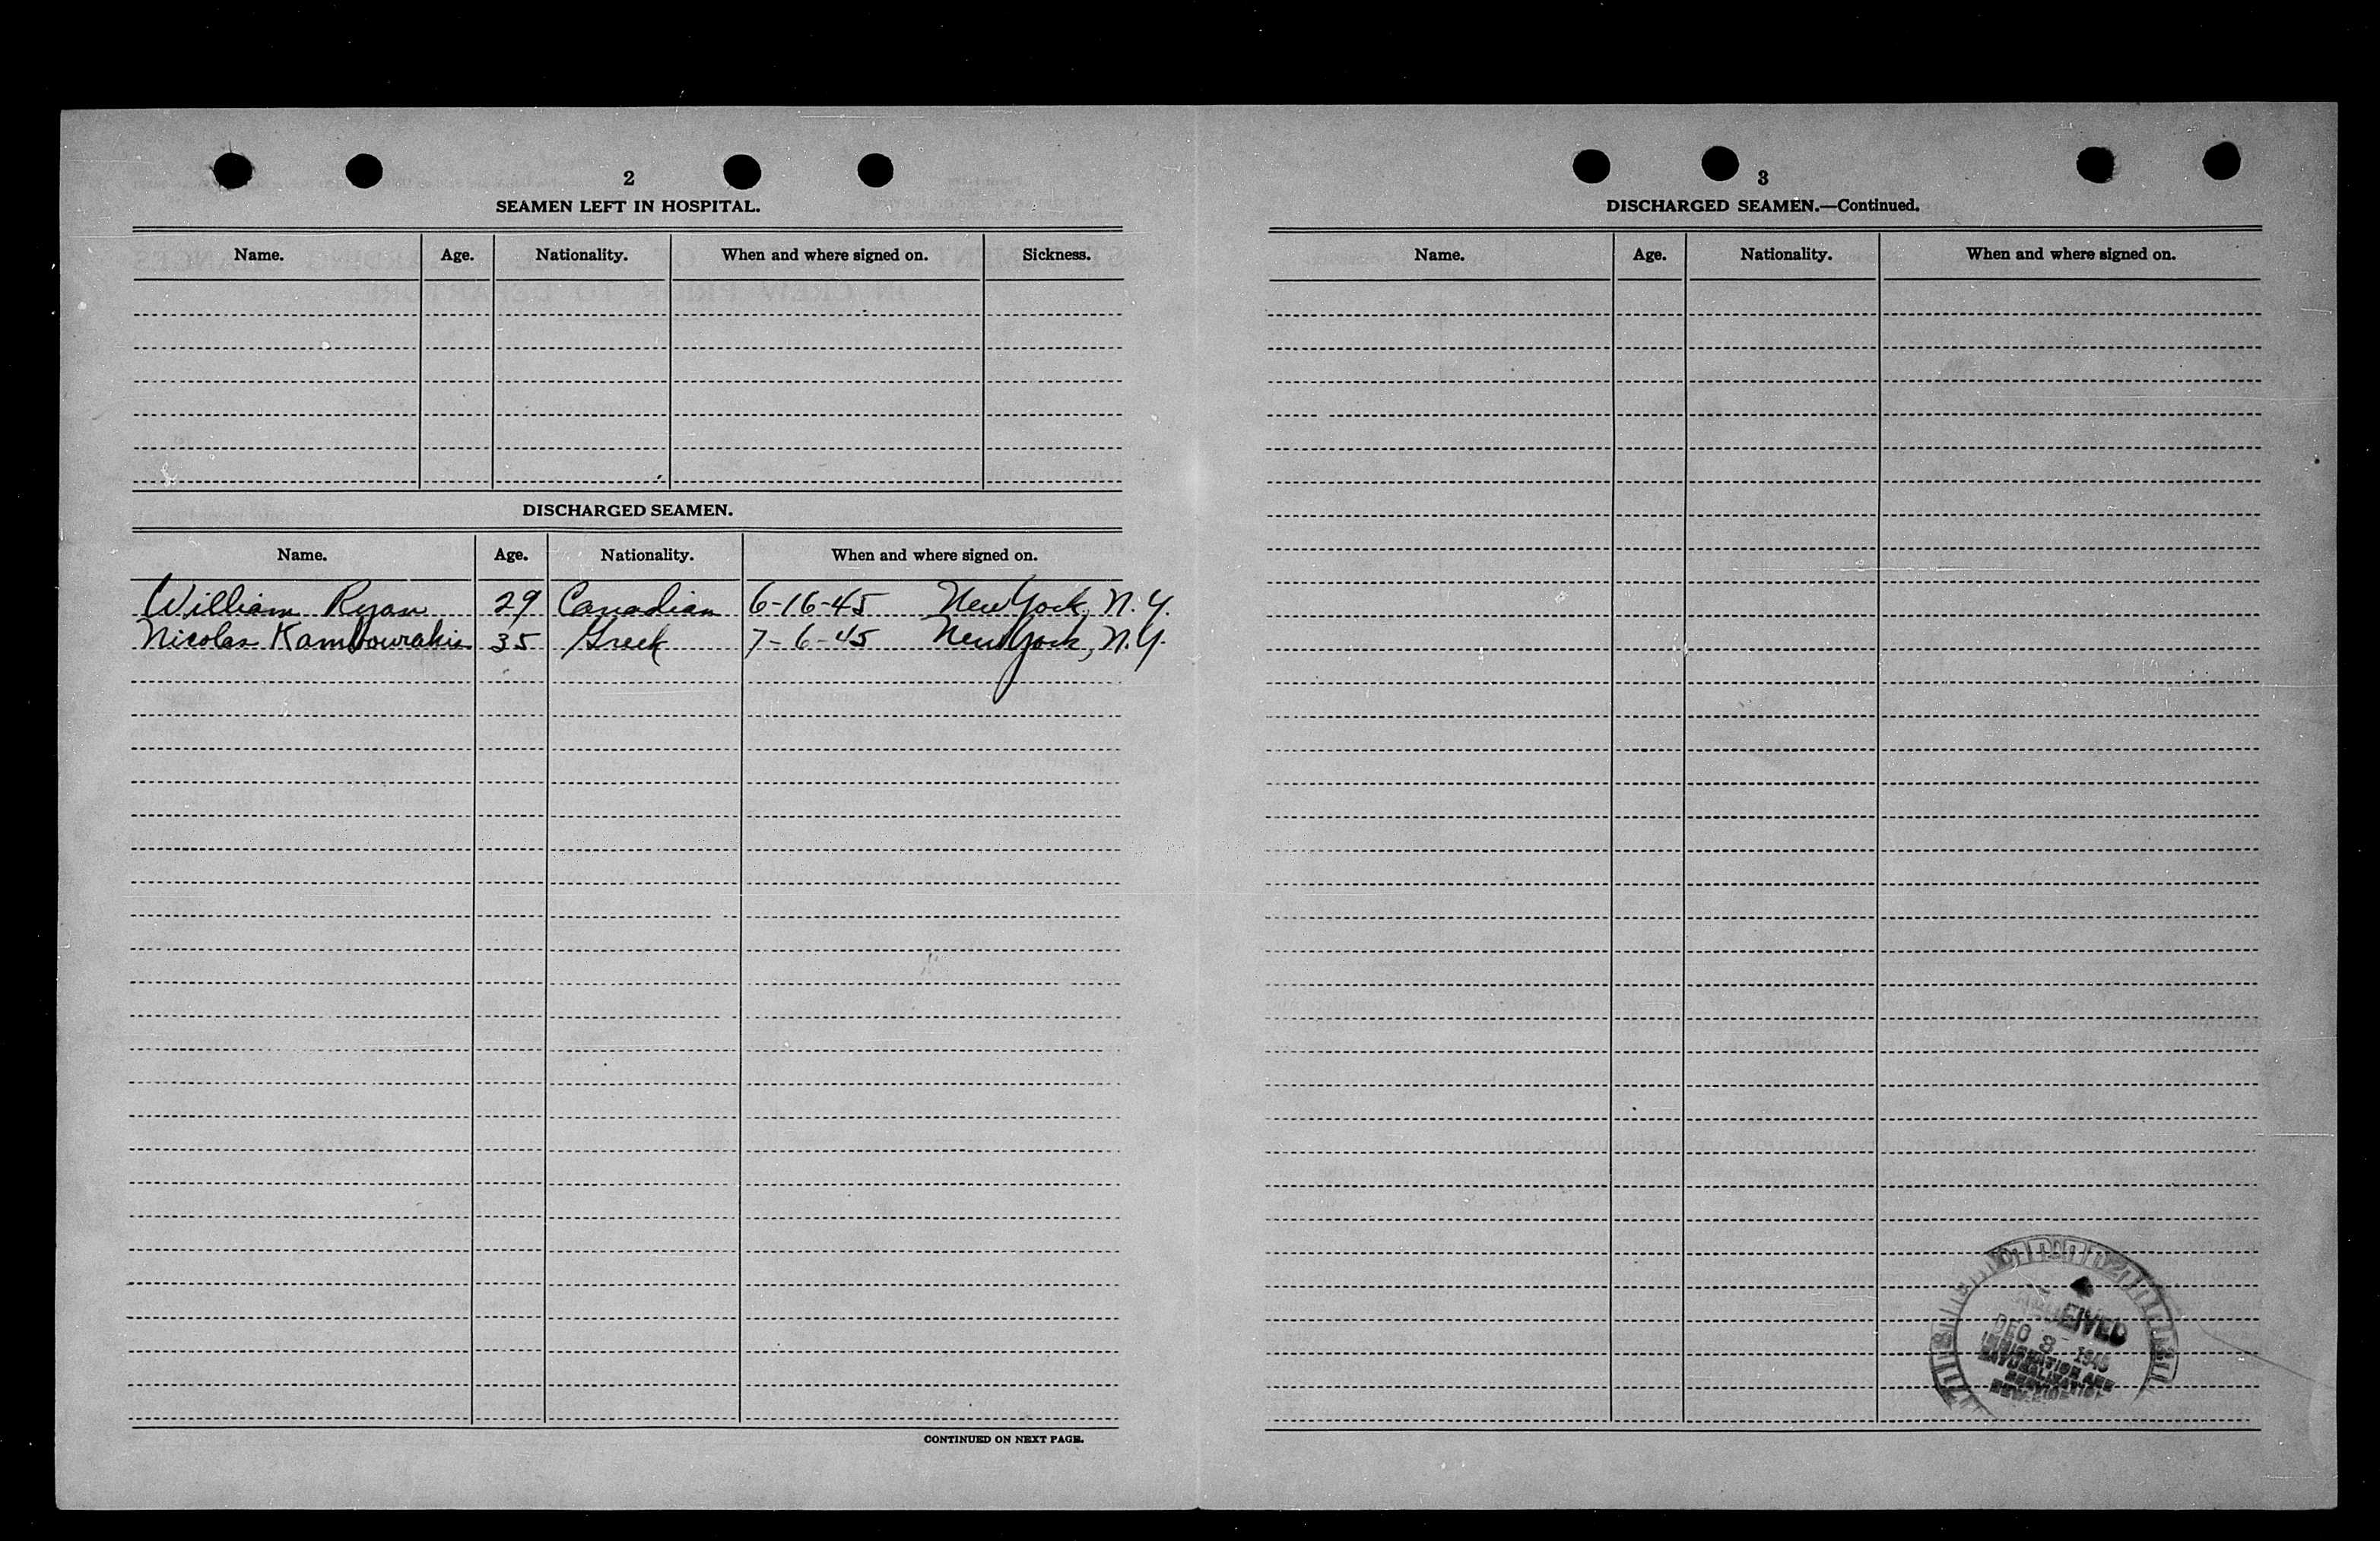 2
SEAMEN LEFT IN HOSPITAL.
Name. Age. Nationality. When and where signed on. Sickness.
DISCHARGED SEAMEN.
Name. Age. Nationality. When and where signed on.
William Ryan 29 Canadian 6-16-45 New York, N.Y.
Nicolas Kambourakis 35 Greek 7-6-45 New York, N.Y.
CONTINUED ON NEXT PAGE.
3
DISCHARGED SEAMEN.—Continued.
Name. Age. Nationality. When and where signed on.
RECEIVED
DEC 3- 1945
IMMIGRATION AND
NATURALIZATION
SERVICE